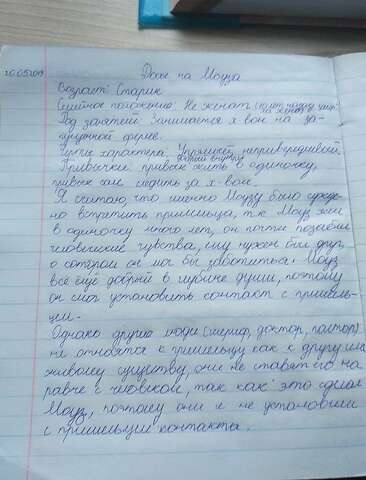 26.05.2019
Досье на Моуза
Возраст: Старик
Семейное положение: Не женат (10 лет назад умер-
ла жена)
Род занятий: Занимается х-вом на за-
пущенной ферме.
Черты характера: Упрямый, неприветливый
добрый внутри
Привычки: привык жить в одиночку,
привык сам следить за х-вом.
Я считаю, что именно Моузу было сужде-
но встретить пришельца, т.к. Моуз жил
в одиночку много лет, он почти позабыл
человеческие чувства, ему нужен был друг,
о котором он мог бы заботиться. Моуз
всё ещё добрый в глубине души, поэтому
он смог установить контакт с пришель-
цем.
Однако другие люди (шериф, доктор, пастор)
не относятся к пришельцу как к другу или
живому существу, они не ставят его на
равне с человеком, так как это сделал
Моуз, поэтому они и не установили
с пришельцем контакта.